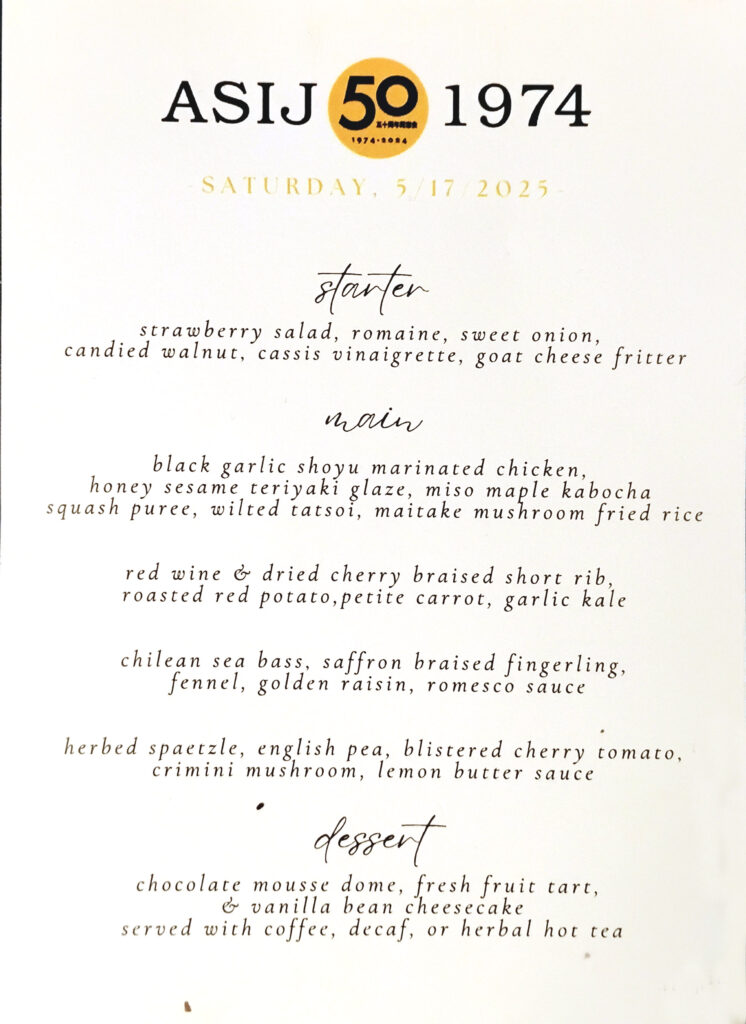 ASIJ 50 1974
五十周年同窓会
1974-2024
SATURDAY, 5/17/2025
starter
strawberry salad, romaine, sweet onion,
candied walnut, cassis vinaigrette, goat cheese fritter
main
black garlic shoyu marinated chicken,
honey sesame teriyaki glaze, miso maple kabocha
squash puree, wilted tatsoi, maitake mushroom fried rice
red wine & dried cherry braised short rib,
roasted red potato,petite carrot, garlic kale
chilean sea bass, saffron braised fingerling,
fennel, golden raisin, romesco sauce
herbed spaetzle, english pea, blistered cherry tomato,
crimini mushroom, lemon butter sauce
dessert
chocolate mousse dome, fresh fruit tart,
& vanilla bean cheesecake
served with coffee, decaf, or herbal hot tea